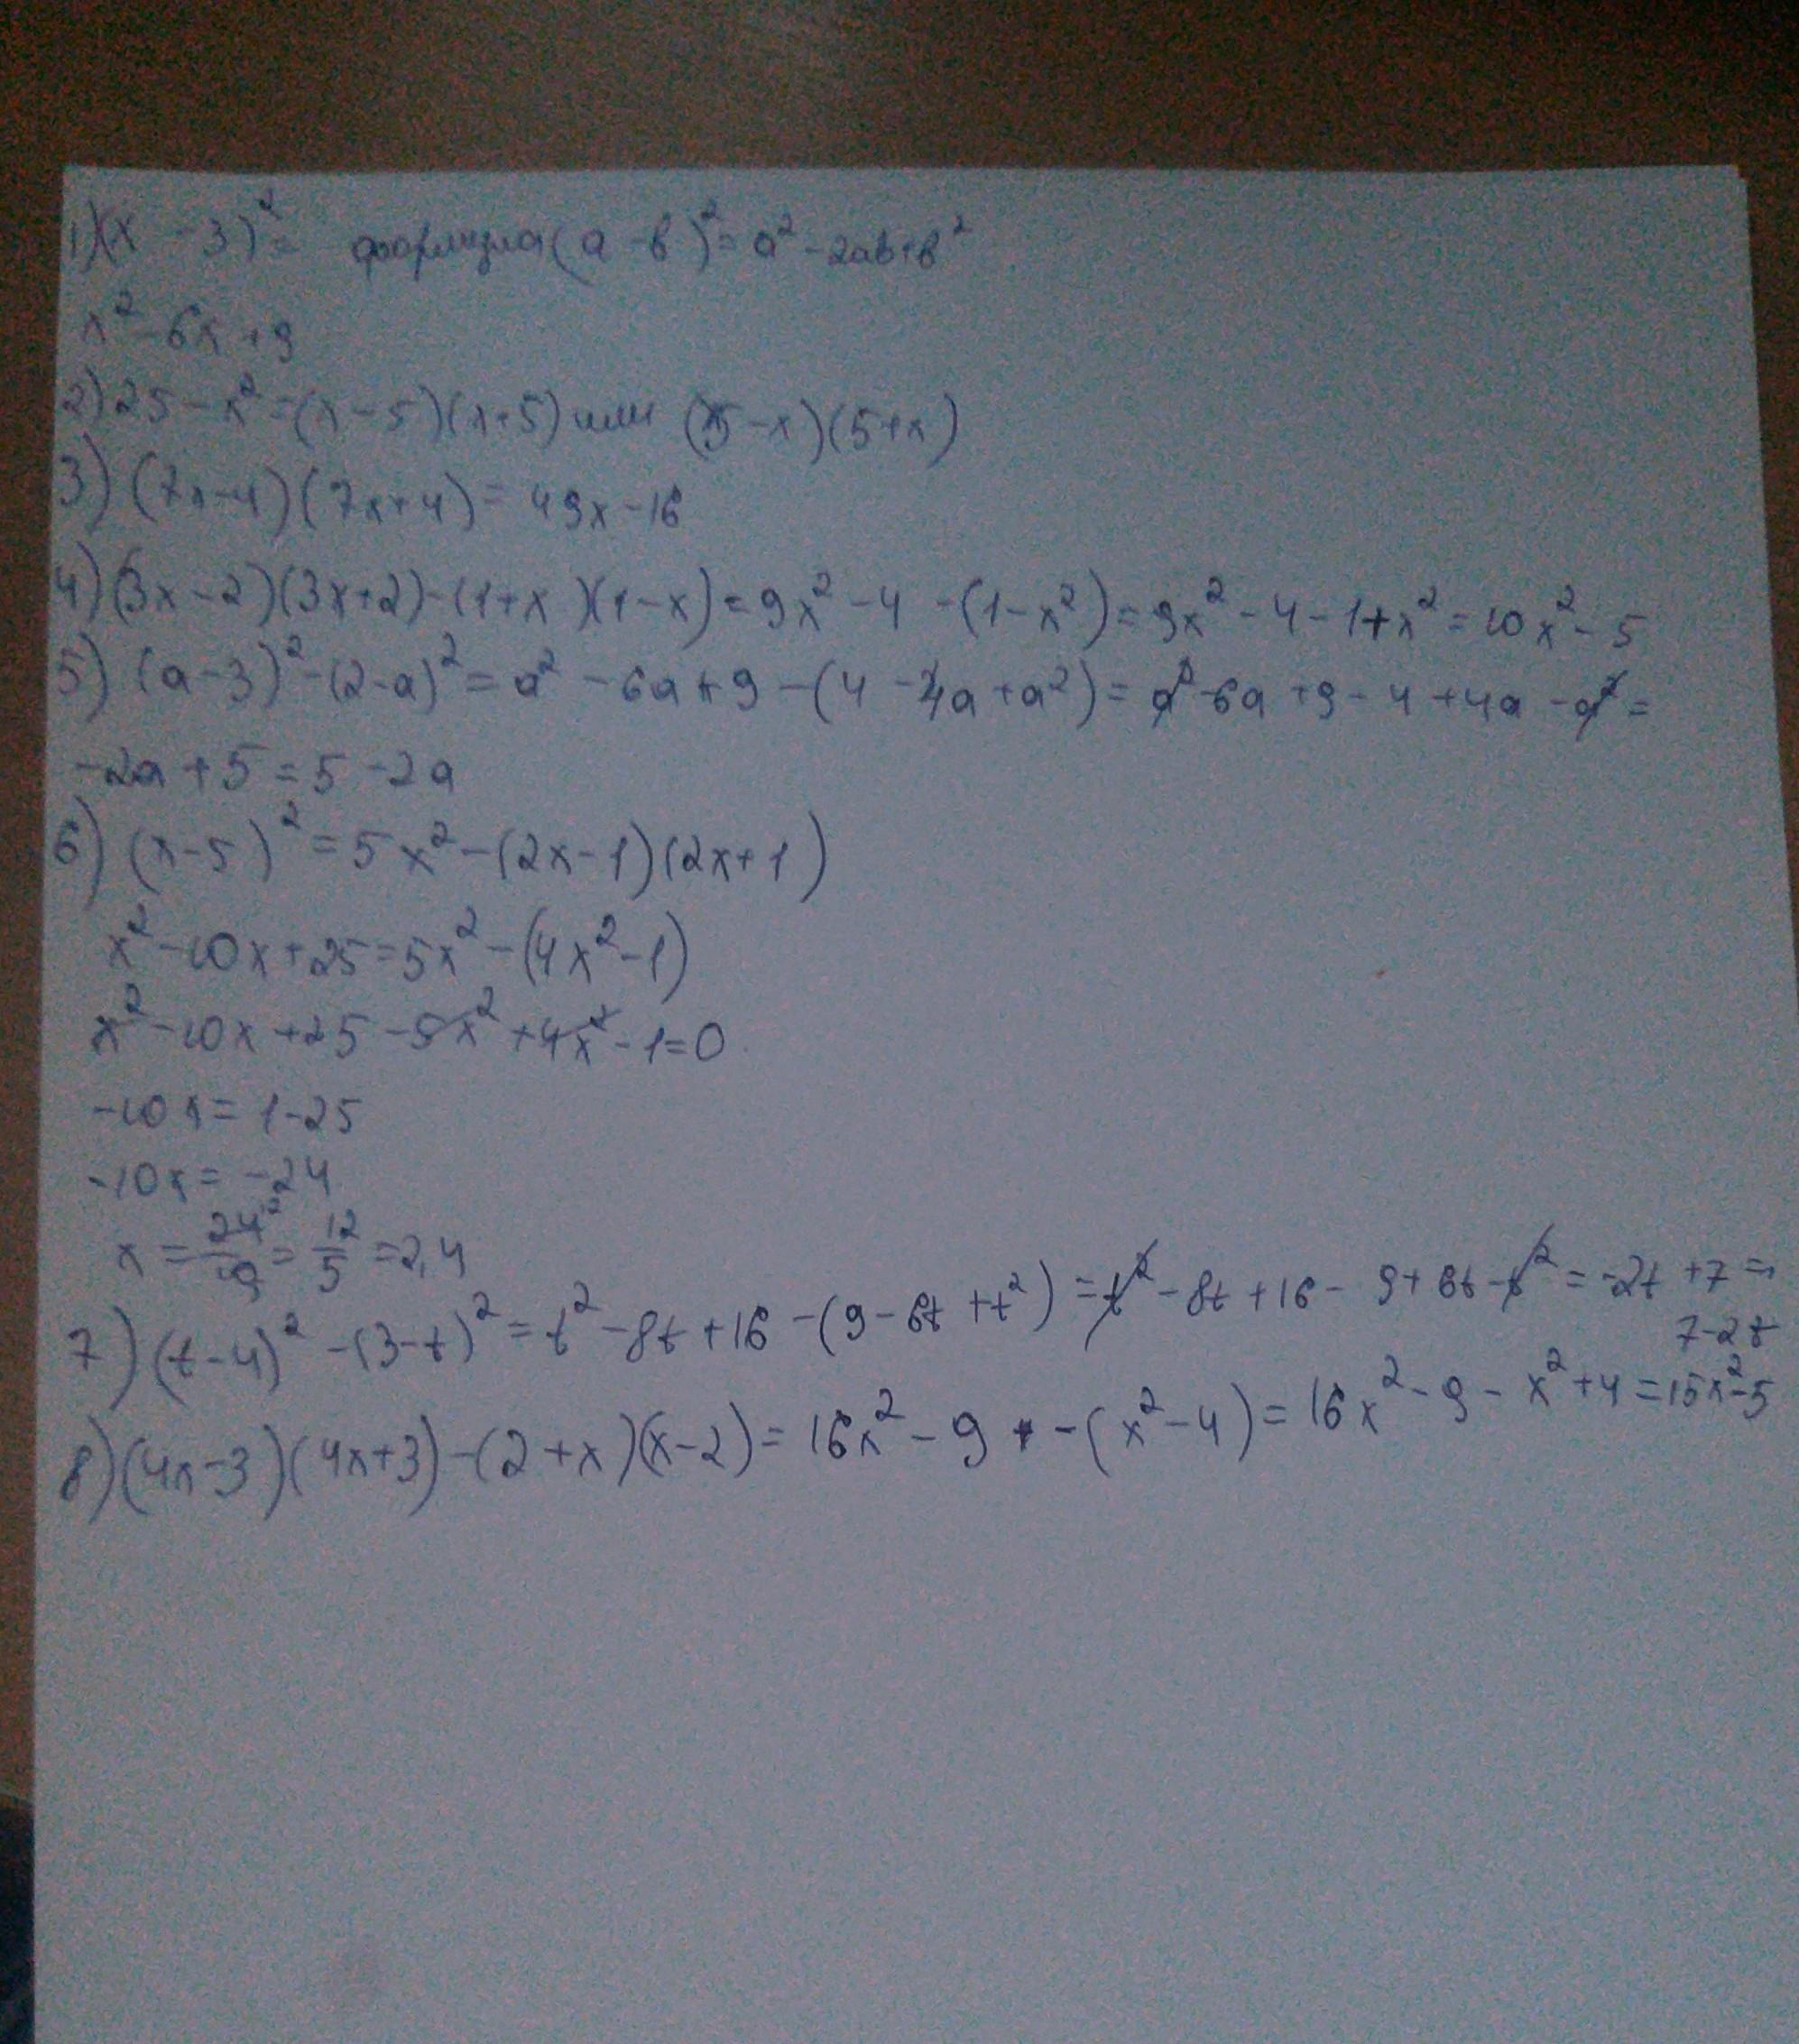 1)(x - 3)² = формула (a - b)² = a² - 2ab + b²
x² - 6x + 9
2) 25 - x² = (x - 5)(x + 5) или (5 - x)(5 + x)
3) (7x - 4)(7x + 4) = 49x - 16
4) (3x - 2)(3x + 2) - (1 + x)(1 - x) = 9x² - 4 - (1 - x²) = 9x² - 4 - 1 + x² = 10x² - 5
5) (a - 3)² - (2 - a)² = a² - 6a + 9 - (4 - 4a + a²) = a² - 6a + 9 - 4 + 4a - a² =
-2a + 5 = 5 - 2a
6) (x - 5)² = 5x² - (2x - 1)(2x + 1)
x² - 10x + 25 = 5x² - (4x² - 1)
x² - 10x + 25 - 5x² + 4x² - 1 = 0
-10x = 1 - 25
-10x = -24
x = 24/10 = 12/5 = 2,4
7) (t - 4)² - (3 - t)² = t² - 8t + 16 - (9 - 6t + t²) = t² - 8t + 16 - 9 + 6t - t² = -2t + 7 =
7 - 2t
8) (4x - 3)(4x + 3) - (2 + x)(x - 2) = 16x² - 9 - (x² - 4) = 16x² - 9 - x² + 4 = 15x² - 5